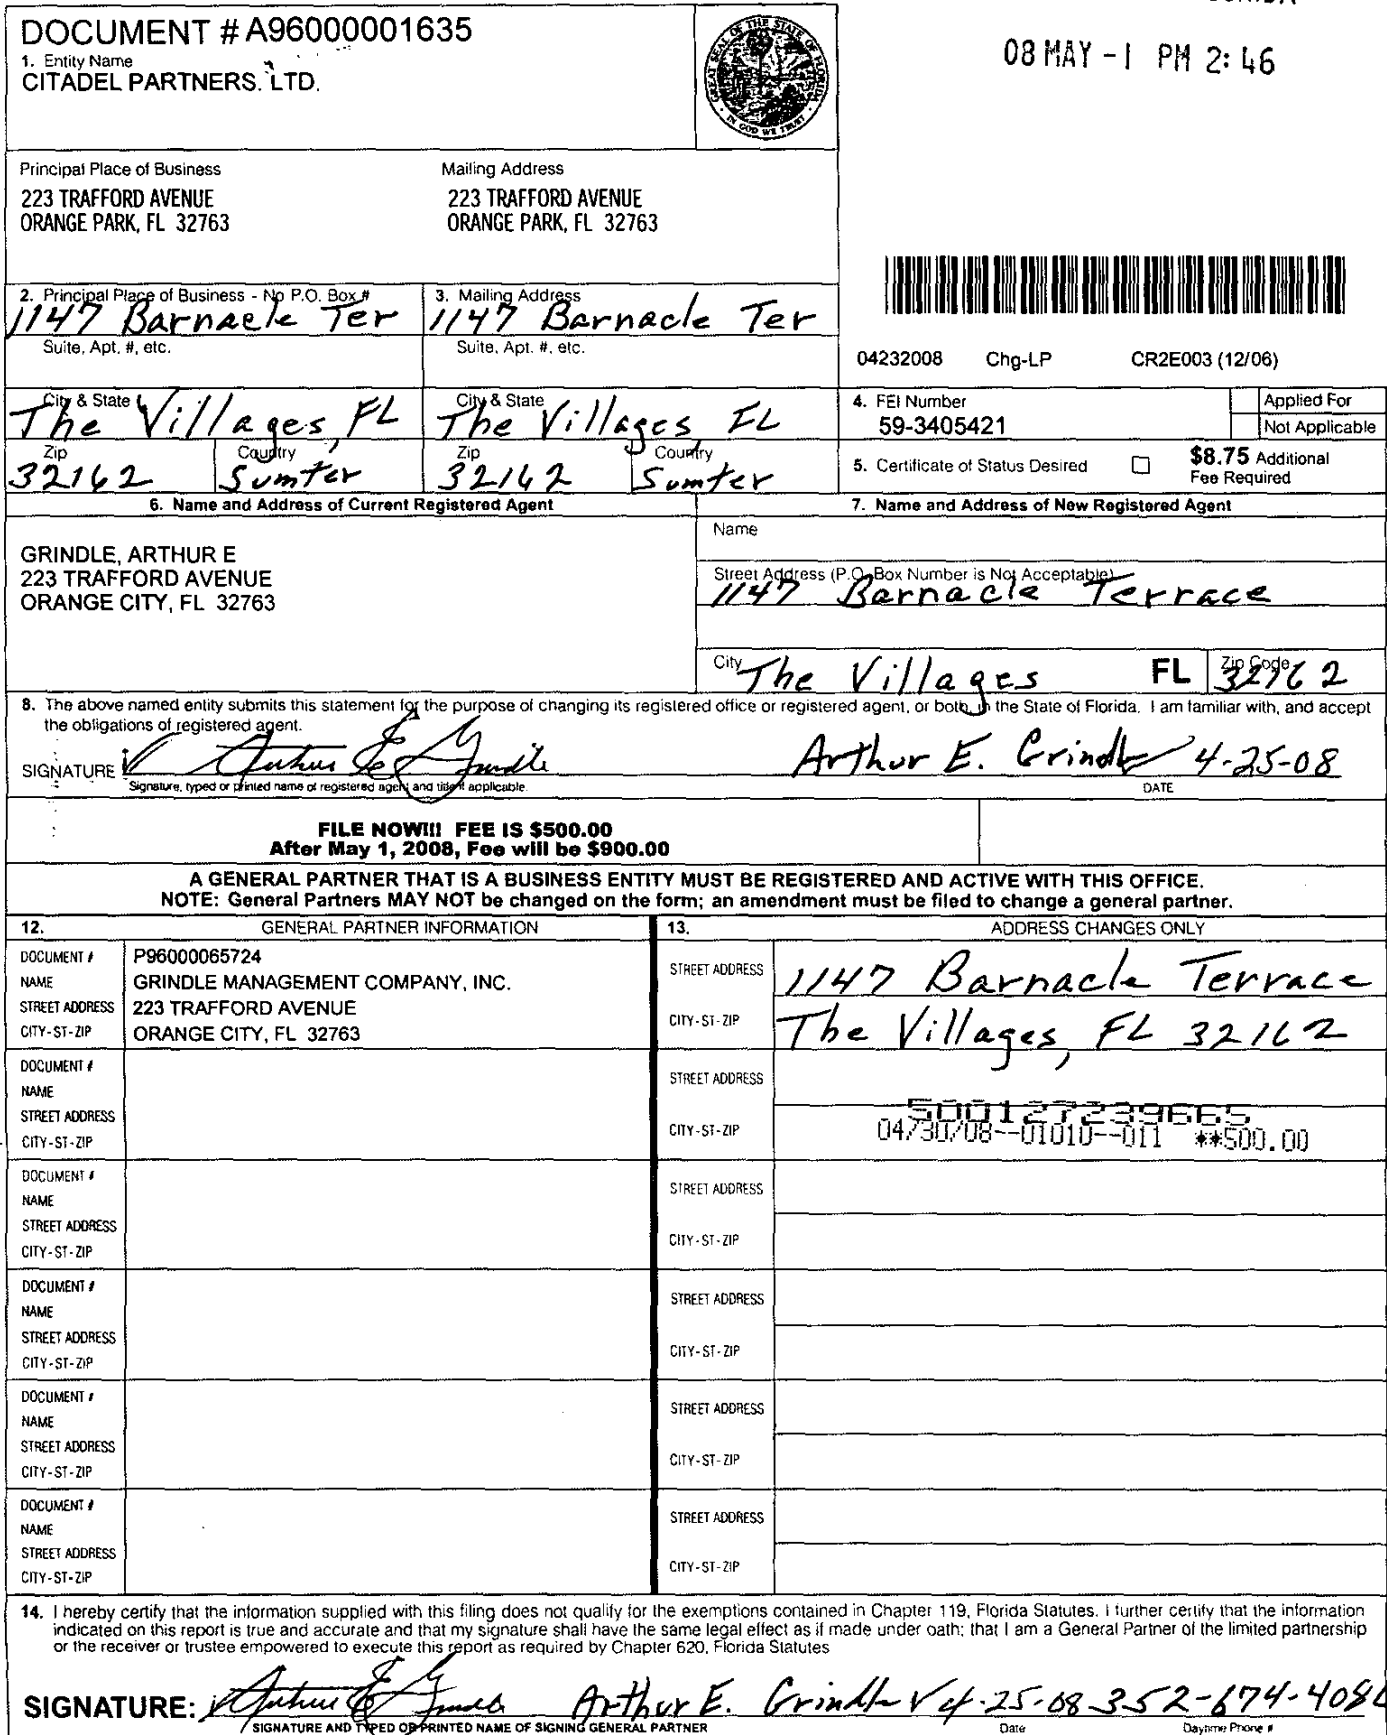 DOCUMENT # A96000001635
1. Entity Name
CITADEL PARTNERS, LTD.
GREAT SEAL OF THE STATE OF FLORIDA
IN GOD WE TRUST
08 MAY -1 PM 2:46
Principal Place of Business
223 TRAFFORD AVENUE
ORANGE PARK, FL 32763
Mailing Address
223 TRAFFORD AVENUE
ORANGE PARK, FL 32763
2. Principal Place of Business - No P.O. Box #
1147 Barnacle Ter
3. Mailing Address
1147 Barnacle Ter
Suite, Apt. #, etc.
Suite, Apt. #, etc.
04232008 Chg-LP CR2E003 (12/06)
City & State
The Villages, FL
City & State
The Villages FL
Zip
32162
Country
Sumter
Zip
32162
Country
Sumter
4. FEI Number
59-3405421
Applied For
Not Applicable
5. Certificate of Status Desired
$8.75 Additional
Fee Required
6. Name and Address of Current Registered Agent
GRINDLE, ARTHUR E
223 TRAFFORD AVENUE
ORANGE CITY, FL 32763
7. Name and Address of New Registered Agent
Name
Street Address (P.O. Box Number is Not Acceptable)
1147 Barnacle Terrace
City The Villages FL Zip Code 32162
8. The above named entity submits this statement for the purpose of changing its registered office or registered agent, or both, in the State of Florida. I am familiar with, and accept
the obligations of registered agent.
SIGNATURE Arthur E Grindle Arthur E. Grindle 4-25-08
Signature, typed or printed name of registered agent and title if applicable.
DATE
FILE NOW!!! FEE IS $500.00
After May 1, 2008, Fee will be $900.00
A GENERAL PARTNER THAT IS A BUSINESS ENTITY MUST BE REGISTERED AND ACTIVE WITH THIS OFFICE.
NOTE: General Partners MAY NOT be changed on the form; an amendment must be filed to change a general partner.
12. GENERAL PARTNER INFORMATION
13. ADDRESS CHANGES ONLY
DOCUMENT # P96000065724
NAME GRINDLE MANAGEMENT COMPANY, INC.
STREET ADDRESS 223 TRAFFORD AVENUE
CITY-ST-ZIP ORANGE CITY, FL 32763
STREET ADDRESS 1147 Barnacle Terrace
CITY-ST-ZIP The Villages, FL 32162
DOCUMENT #
NAME
STREET ADDRESS
CITY-ST-ZIP
STREET ADDRESS
CITY-ST-ZIP
500127239665
04/30/08--01010--011 **500.00
DOCUMENT #
NAME
STREET ADDRESS
CITY-ST-ZIP
STREET ADDRESS
CITY-ST-ZIP
DOCUMENT #
NAME
STREET ADDRESS
CITY-ST-ZIP
STREET ADDRESS
CITY-ST-ZIP
DOCUMENT #
NAME
STREET ADDRESS
CITY-ST-ZIP
STREET ADDRESS
CITY-ST-ZIP
DOCUMENT #
NAME
STREET ADDRESS
CITY-ST-ZIP
STREET ADDRESS
CITY-ST-ZIP
14. I hereby certify that the information supplied with this filing does not qualify for the exemptions contained in Chapter 119, Florida Statutes. I further certify that the information
indicated on this report is true and accurate and that my signature shall have the same legal effect as if made under oath; that I am a General Partner of the limited partnership
or the receiver or trustee empowered to execute this report as required by Chapter 620, Florida Statutes
SIGNATURE: Arthur E Grindle Arthur E. Grindle 4-25-08 352-674-4086
SIGNATURE AND TYPED OR PRINTED NAME OF SIGNING GENERAL PARTNER
Date
Daytime Phone #